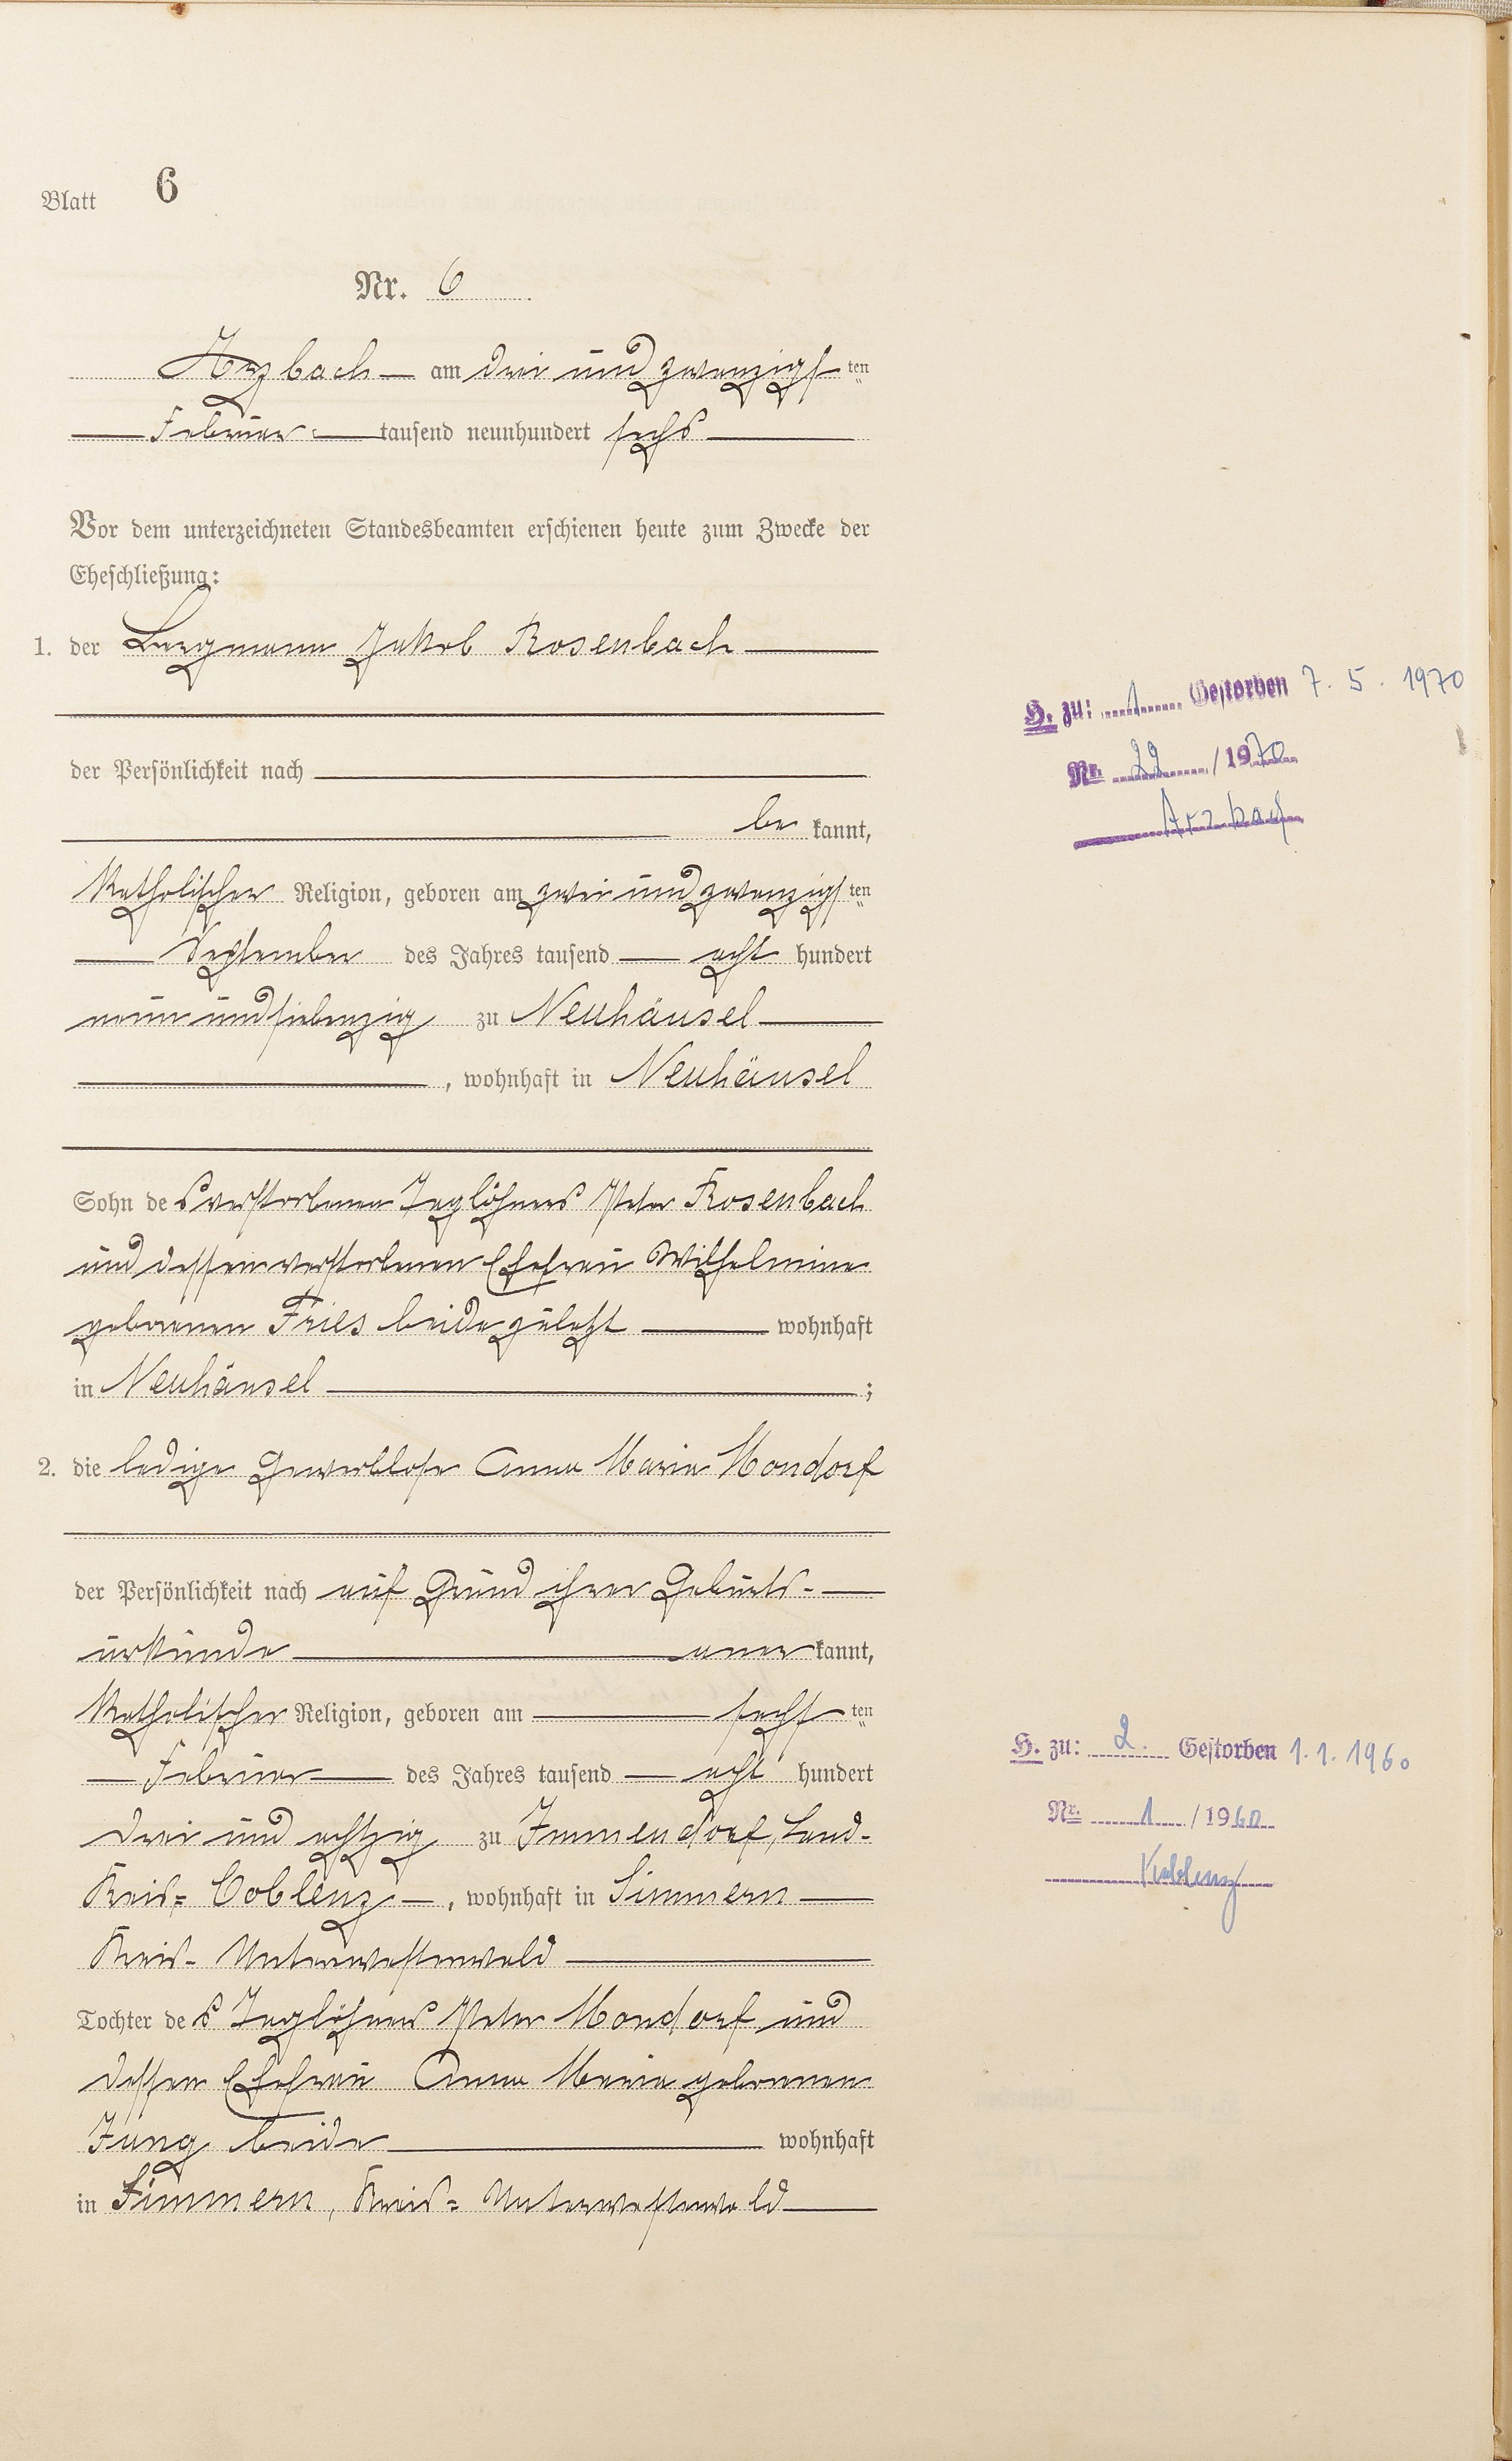 Blatt 6
Nr. 6
Arzbach am drei und zwanzigsten
Februar tausend neunhundert sechs
Vor dem unterzeichneten Standesbeamten erschienen heute zum Zwecke der
Eheschließung:
1. der Bergmann Jakob Rosenbach
der Persönlichkeit nach
be kannt,
katholischer Religion, geboren am zwei und zwanzigsten
September des Jahres tausend acht hundert
neun und siebenzig zu Neuhäusel
, wohnhaft in Neuhäusel
Sohn des verstorbenen Taglöhners Peter Rosenbach
und dessen verstorbenen Ehefrau Wilhelmine
geborenen Fries beide zuletzt wohnhaft
in Neuhäusel ;
2. die ledige Gewerblose Anna Maria Mondorf
der Persönlichkeit nach auf Grund ihrer Geburts-
urkunde aner kannt,
katholischer Religion, geboren am sechsten
Februar des Jahres tausend acht hundert
drei und achtzig zu Immendorf, Land-
kreis= Coblenz , wohnhaft in Simmern
Kreis- Unterwesterwald
Tochter des Taglöhners Peter Mondorf und
dessen Ehefrau Anna Maria geborenen
Jung beide wohnhaft
in Simmern, Kreis= Unterwesterwald
H. zu: 1 Gestorben 7. 5. 1970
Nr. 22 / 1970
Arzbach
H. zu: 2. Gestorben 1. 1. 1960
Nr. 1 / 1960
Koblenz